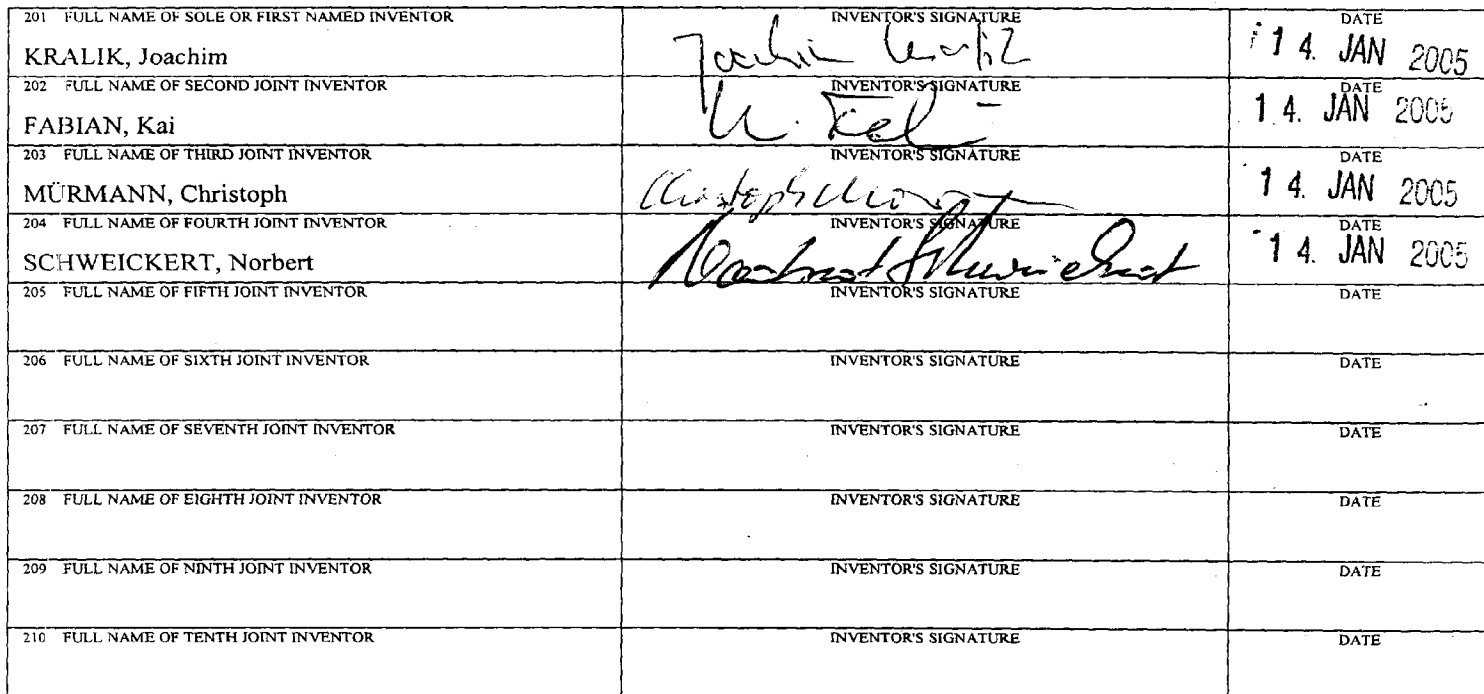 201 FULL NAME OF SOLE OR FIRST NAMED INVENTOR INVENTOR'S SIGNATURE DATE
KRALIK, Joachim Joachim Kralik 14. JAN 2005
202 FULL NAME OF SECOND JOINT INVENTOR INVENTOR'S SIGNATURE DATE
FABIAN, Kai 14. JAN 2005
203 FULL NAME OF THIRD JOINT INVENTOR INVENTOR'S SIGNATURE DATE
MÜRMANN, Christoph Christoph 14. JAN 2005
204 FULL NAME OF FOURTH JOINT INVENTOR INVENTOR'S SIGNATURE DATE
SCHWEICKERT, Norbert Norbert Schweickert 14. JAN 2005
205 FULL NAME OF FIFTH JOINT INVENTOR INVENTOR'S SIGNATURE DATE
206 FULL NAME OF SIXTH JOINT INVENTOR INVENTOR'S SIGNATURE DATE
207 FULL NAME OF SEVENTH JOINT INVENTOR INVENTOR'S SIGNATURE DATE
208 FULL NAME OF EIGHTH JOINT INVENTOR INVENTOR'S SIGNATURE DATE
209 FULL NAME OF NINTH JOINT INVENTOR INVENTOR'S SIGNATURE DATE
210 FULL NAME OF TENTH JOINT INVENTOR INVENTOR'S SIGNATURE DATE